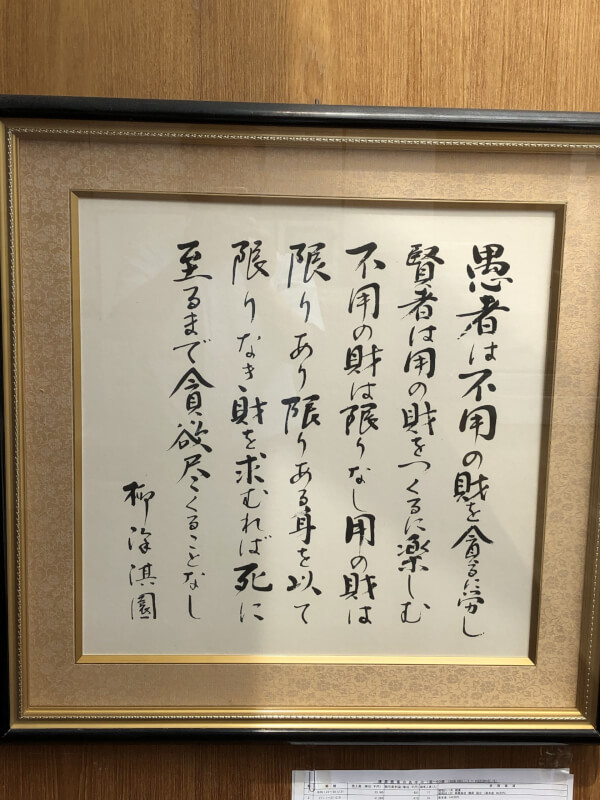 愚者は不用の財を貪るに労し
賢者は用の財をつくるに楽しむ
不用の財は限りなし用の財は
限りあり限りある身を以て
限りなき財を求むれば死に
至るまで貪欲尽くることなし
柳淇園